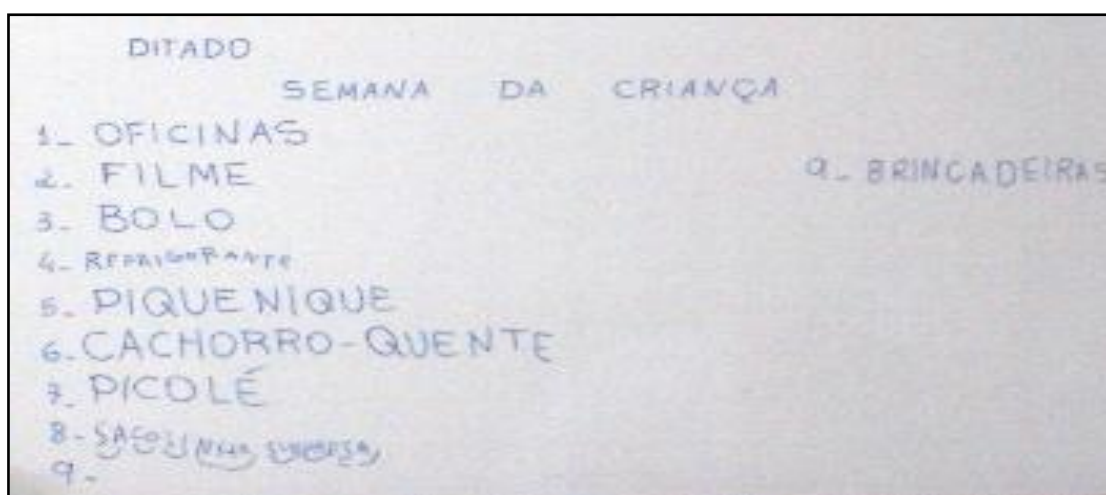 DITADO
SEMANA DA CRIANÇA
1- OFICINAS
2- FILME
3- BOLO
4- REFRIGERANTE
5- PIQUENIQUE
6- CACHORRO-QUENTE
7- PICOLÉ
8- SACOLINHA SURPRESA
9-
9- BRINCADEIRAS